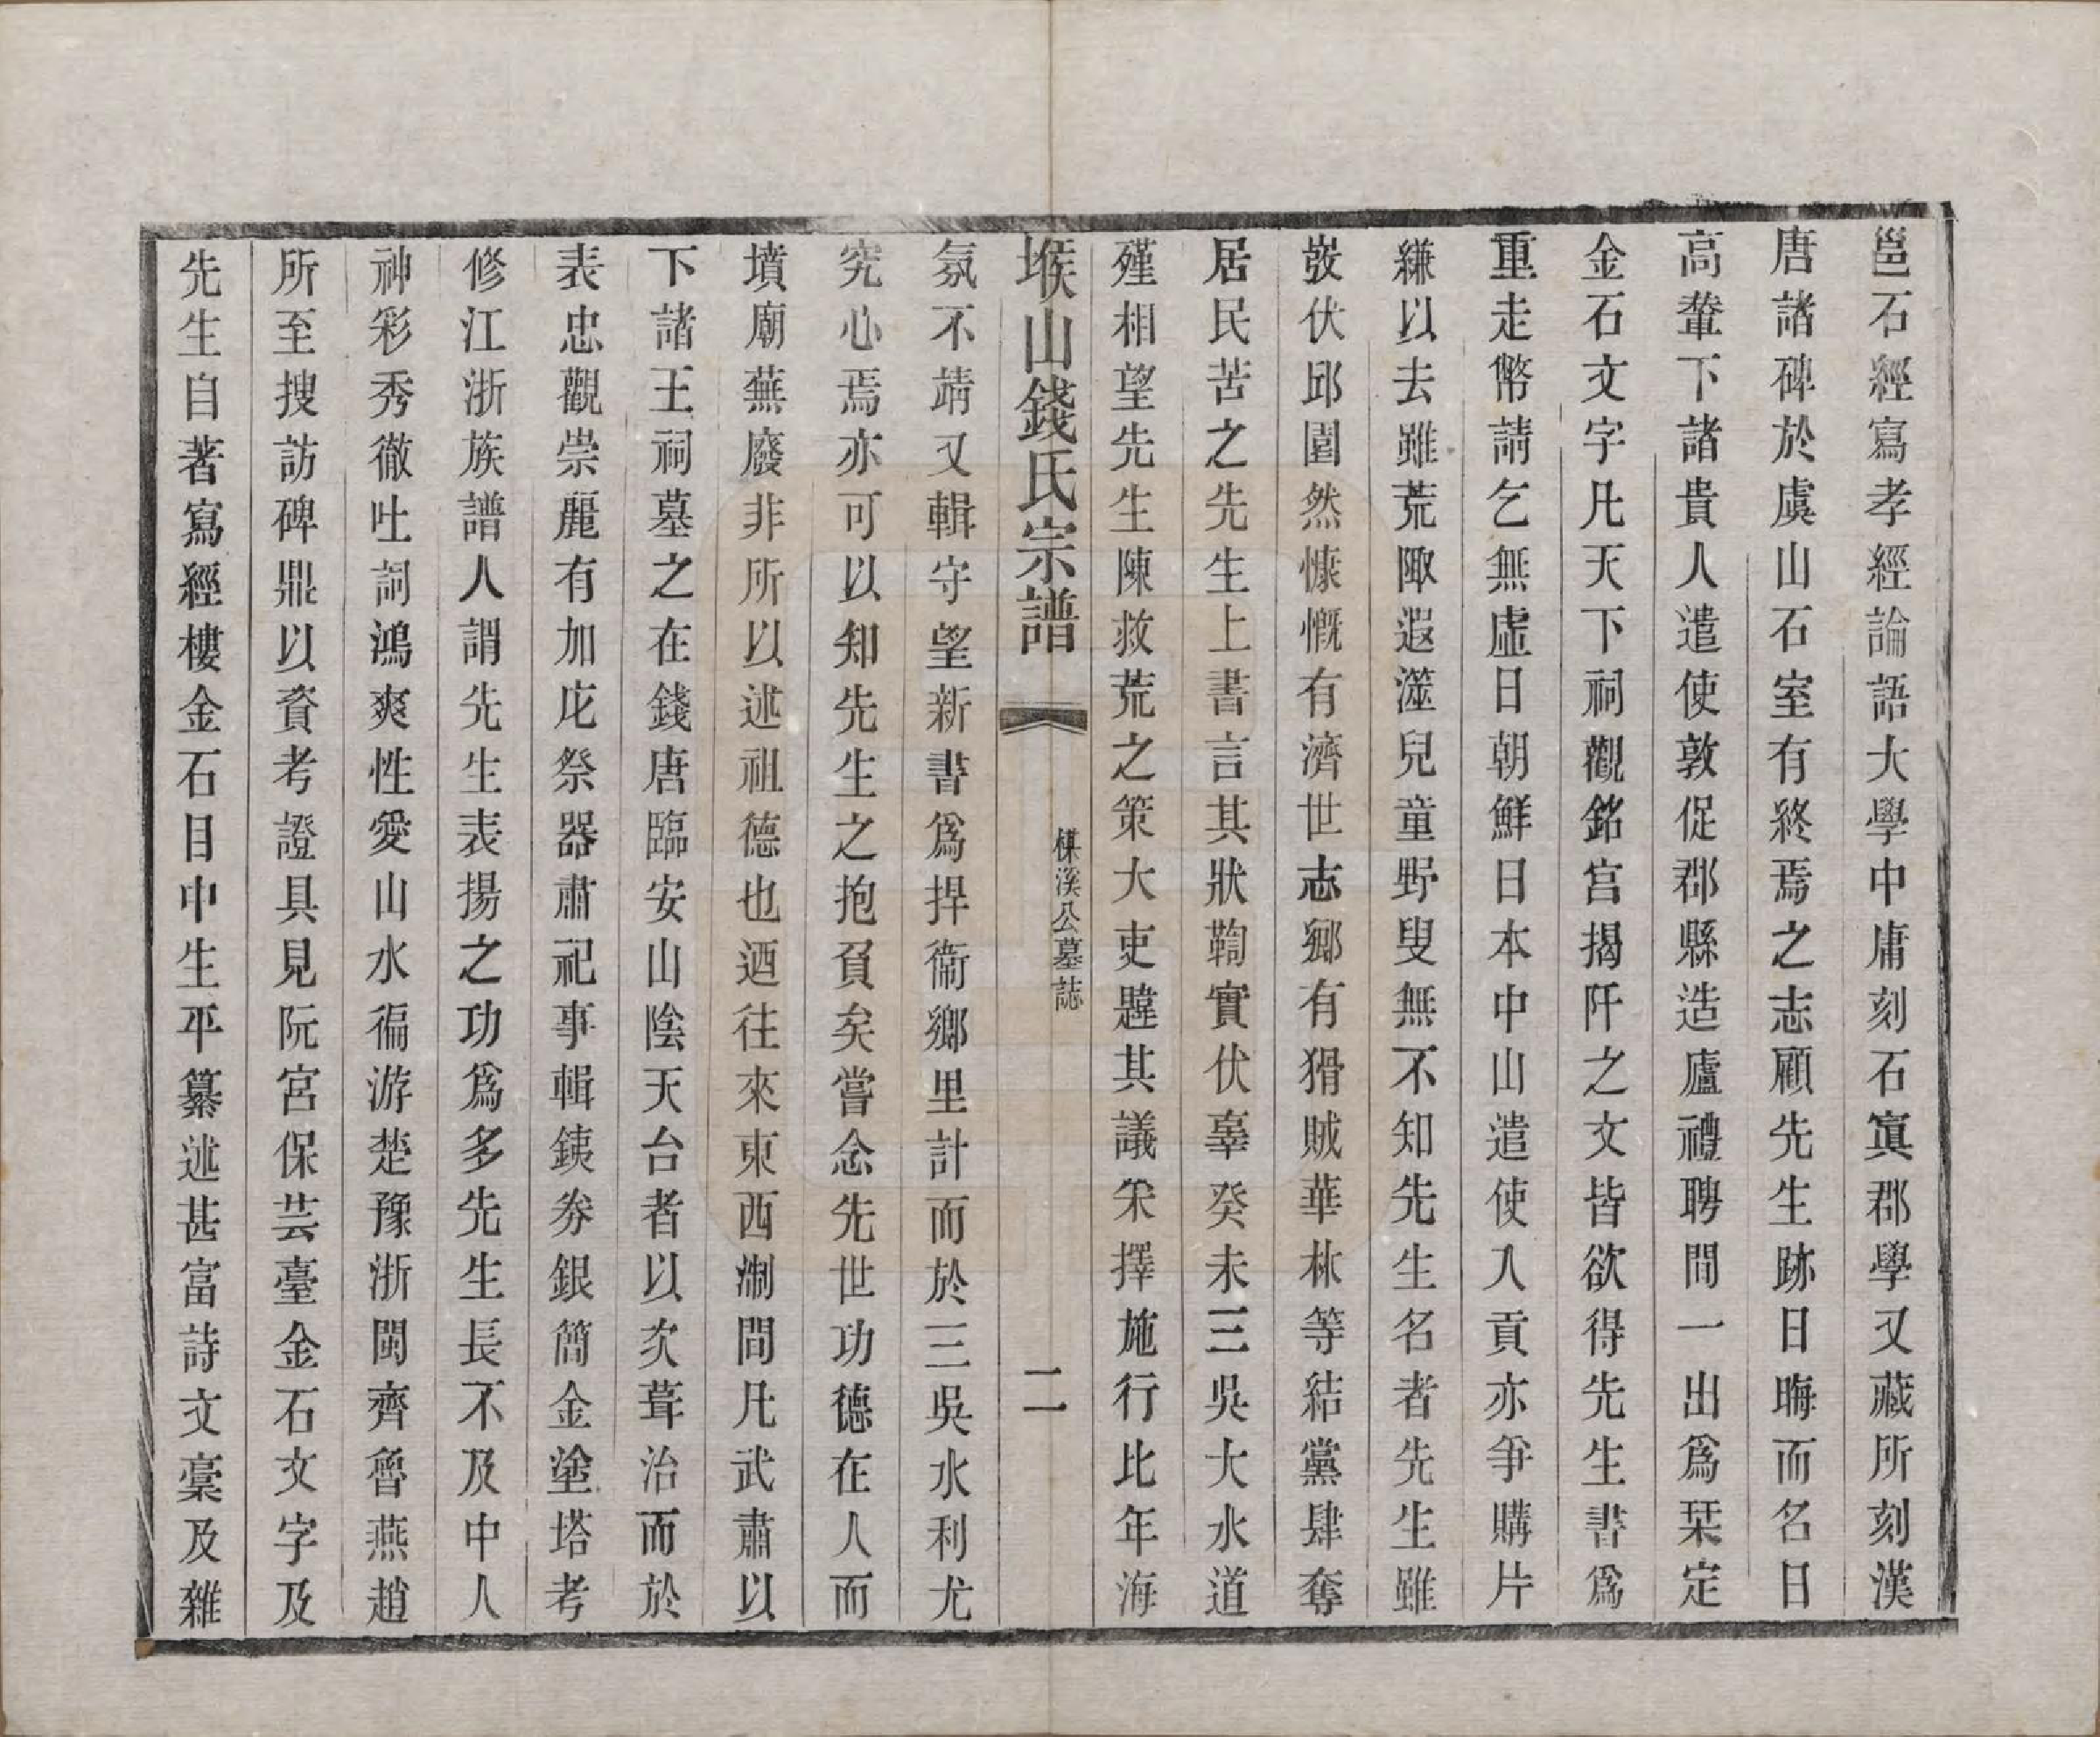 邕石經寫孝經論語大學中庸刻石寘郡學又藏所刻漢
唐諸碑於虞山石室有終焉之志顧先生跡日晦而名日
高輦下諸貴人遣使敦促郡縣造廬禮聘間一出爲栞定
金石文字凡天下祠觀銘宮揭阡之文皆欲得先生書爲
重走幣請乞無虛日朝鮮日本中山遣使入貢亦爭購片
縑以去雖荒陬遐澨兒童野叟無不知先生名者先生雖
敳伏邱園然慷慨有濟世志鄉有猾賊華林等結黨肆奪
居民苦之先生上書言其狀鞫實伏辜癸未三吳大水道
殣相望先生陳救荒之策大吏韙其議采擇施行比年海
堠山錢氏宗譜 楳溪公墓誌 二
氛不靖又輯守望新書爲捍衞鄉里計而於三吳水利尤
究心焉亦可以知先生之抱負矣嘗念先世功德在人而
墳廟蕪廢非所以述祖德也迺往來東西淛間凡武肅以
下諸王祠墓之在錢唐臨安山陰天台者以次葺治而於
表忠觀崇麗有加庀祭器肅祀事輯銕券銀簡金塗塔考
修江浙族譜人謂先生表揚之功爲多先生長不及中人
神彩秀徹吐詞鴻爽性愛山水徧游楚豫浙閩齊魯燕趙
所至搜訪碑鼎以資考證具見阮宮保芸臺金石文字及
先生自著寫經樓金石目中生平纂述甚富詩文稾及雜